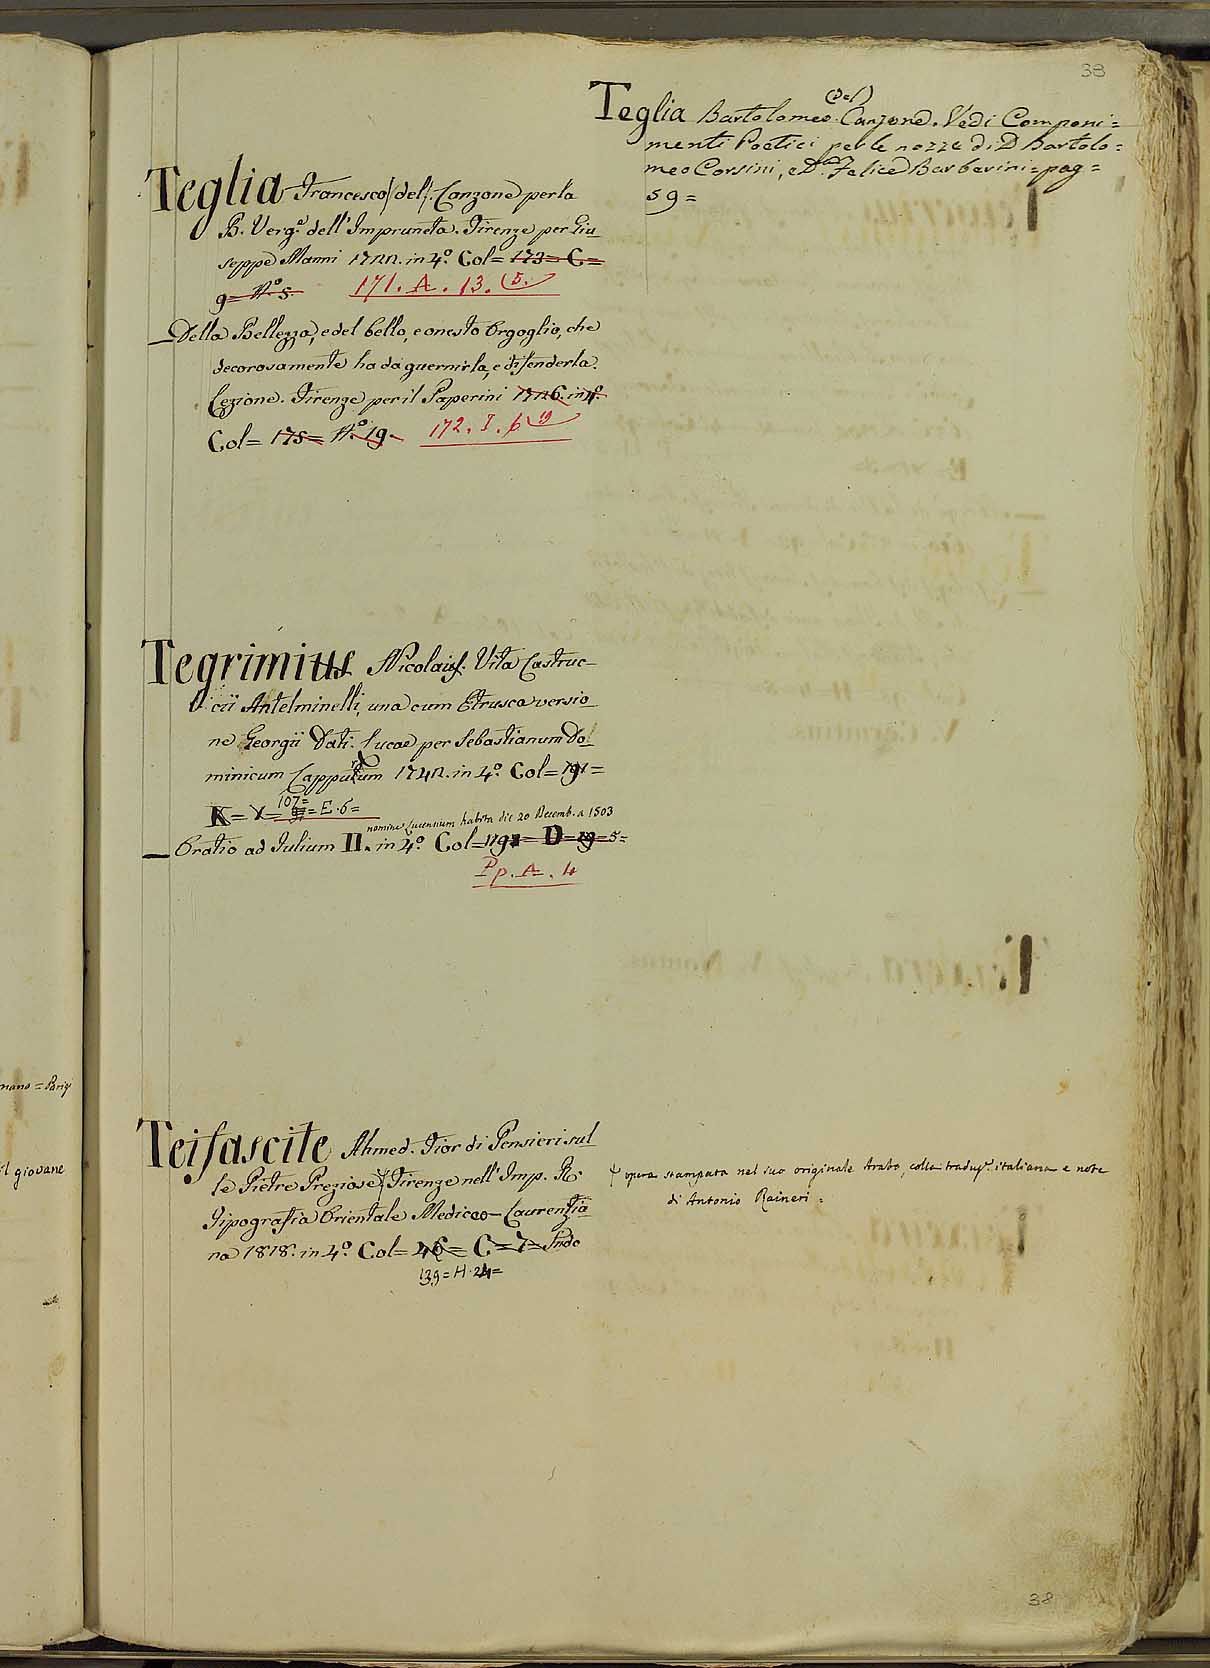 38
Teglia Bartolomeo (Del) Canzone. Vedi Componi=
menti Poetici per le nozze di D. Bartolo=
meo Corsini, e D.na Felice Barberini = pag =
59 =
Teglia Francesco (del). Canzone per la
B. Verg.e dell'Impruneta. Firenze per Giu
seppe Manni 1722. in 4.o Col = 173 = C =
9 = N.o 5.
171. A. 13. (5.
Della Bellezza, e del bello, e onesto Orgoglio, che
decorosamente ha da guernirla, e difenderla.
Lezione. Firenze per il Paperini 1726. in 4.o
Col = 175 = N.o 19.
172. I. 6
Tegrimius Nicolaus. Vita Castruc-
cii Antelminelli, una cum Etrusca versio
ne Georgii Dati. Lucae per Sebastianum Do
minicum Cappurum 1742. in 4.o Col = 191 =
K = V =
107 = E. 6 =
nomine Lucensium habita die 20 Decemb. a 1503
Oratio ad Iulium II. in 4.o Col = = D = 19 = 5 =
Pp. A. 4
Teifascite Ahmed. Fior di Pensieri sul
le Pietre Preziose Firenze nell'Imp. R.
Tipografia Orientale Mediceo-Laurenzia
na 1818. in 4.o Col = 46 = C = 7 =
139 = H. 24 =
opera stampata nel suo originale Arabo, colla traduz.e italiana e note
di Antonio Raineri =
nano = Parigi
il giovane
38